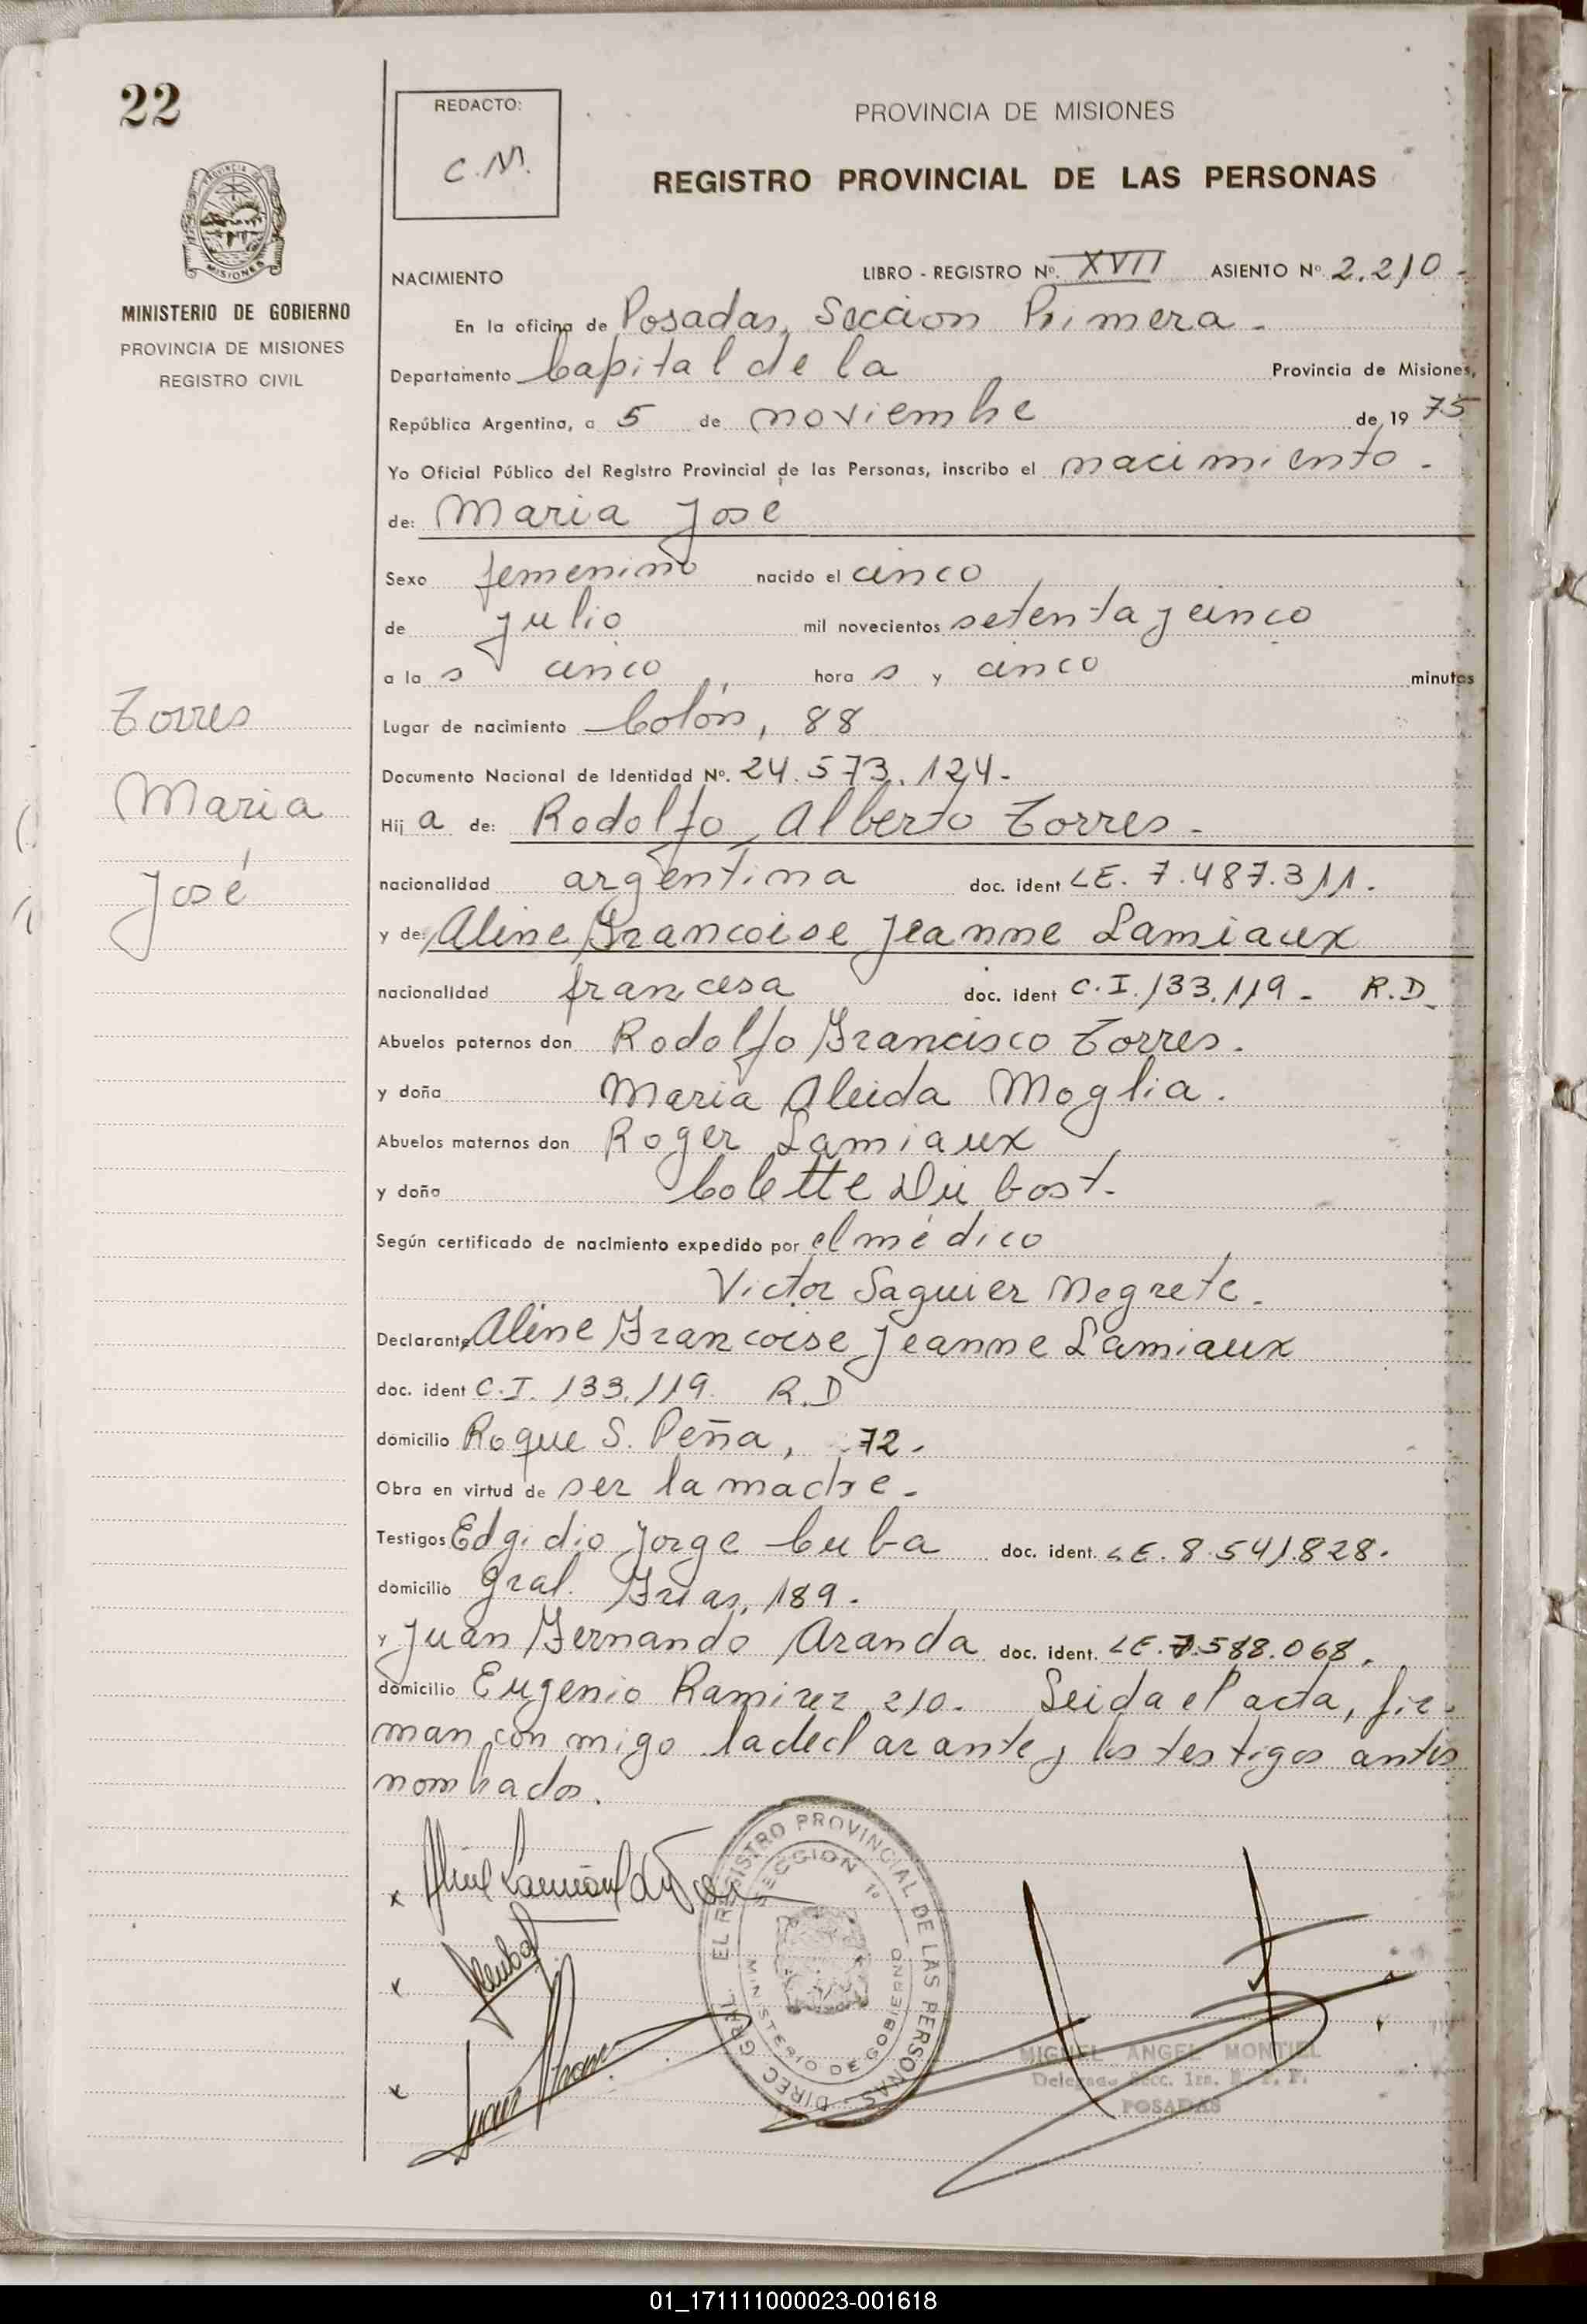 22
REDACTO:
C.M.
PROVINCIA DE MISIONES
REGISTRO PROVINCIAL DE LAS PERSONAS
PROVINCIA DE
MISIONES
MINISTERIO DE GOBIERNO
PROVINCIA DE MISIONES
REGISTRO CIVIL
NACIMIENTO LIBRO - REGISTRO Nº. XVII ASIENTO Nº 2.210.-
En la oficina de Posadas, Seccion Primera.-
Departamento Capital de la Provincia de Misiones,
República Argentina, a 5 de noviembre de 1975
Yo Oficial Público del Registro Provincial de las Personas, inscribo el nacimiento.-
de: Maria José
Sexo femenino nacido el cinco
de julio mil novecientos setenta y cinco
a la s cinco hora s y cinco minutos
Lugar de nacimiento Colón, 88
Documento Nacional de Identidad Nº. 24.573.124-
Hij a de: Rodolfo Alberto Torres.-
nacionalidad argentina doc. ident LE. 7.487.311.
y de: Aline Francoise Jeanne Lamiaux
nacionalidad francesa doc. ident C.I. 133.119.- R.D.
Abuelos paternos don Rodolfo Francisco Torres.
y doña Maria Aleida Moglia.
Abuelos maternos don Roger Lamiaux
y doña Colette Dubost.
Según certificado de nacimiento expedido por el médico
Victor Saguier Negrete.
Declarante Aline Francoise Jeanne Lamiaux
doc. ident C.I. 133.119. R.D
domicilio Roque S. Peña, 72.
Obra en virtud de ser la madre.-
Testigos Edgidio Jorge Cuba doc. ident. LE. 8.541.828.
domicilio Gral. Frias, 189.
y Juan Fernando Aranda doc. ident. LE. 7.588.068.
domicilio Eugenio Ramirez 210. Leida el acta, fir-
man con migo la declarante y los testigos antes
nombrados.
Torres
Maria
José
DIREC. GRAL. EL REGISTRO PROVINCIAL DE LAS PERSONAS
SECCION 1º
MINISTERIO DE GOBIERNO
MIGUEL ANGEL MONTIEL
Delegado Secc. 1ra.
POSADAS
01_171111000023-001618